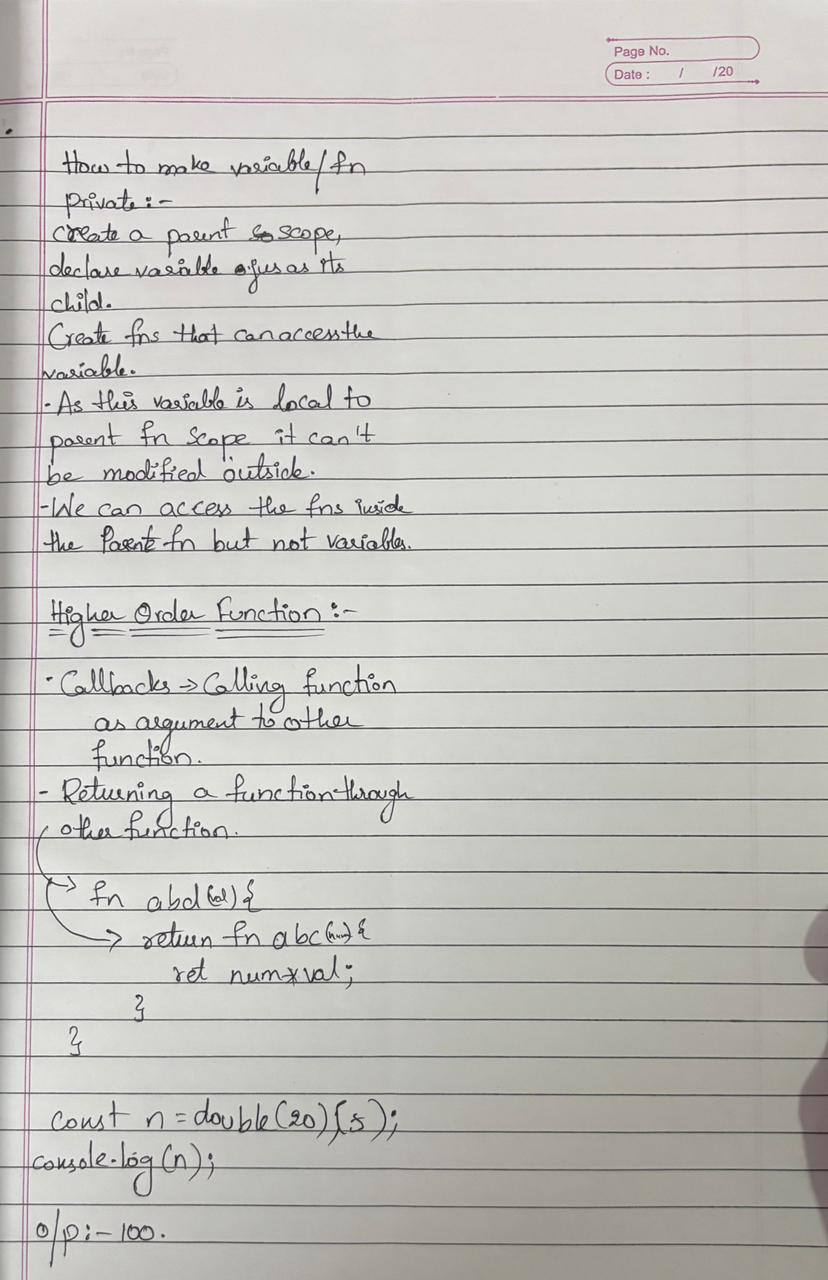 Page No.
Date : / /20
How to make variable/fn
private :-
Create a parent scope,
declare variable as its
child.
Create fns that can access the
variable.
- As this variable is local to
parent fn scope it can't
be modified outside.
- We can access the fns inside
the Parent fn but not variables.
Higher Order Function :-
- Callbacks → Calling function
as argument to other
function.
- Returning a function through
other function.
→ fn abd (val) {
→ return fn abc (num) {
ret num*val;
}
}
const n = double(20)(5);
console.log(n);
o/p :- 100.